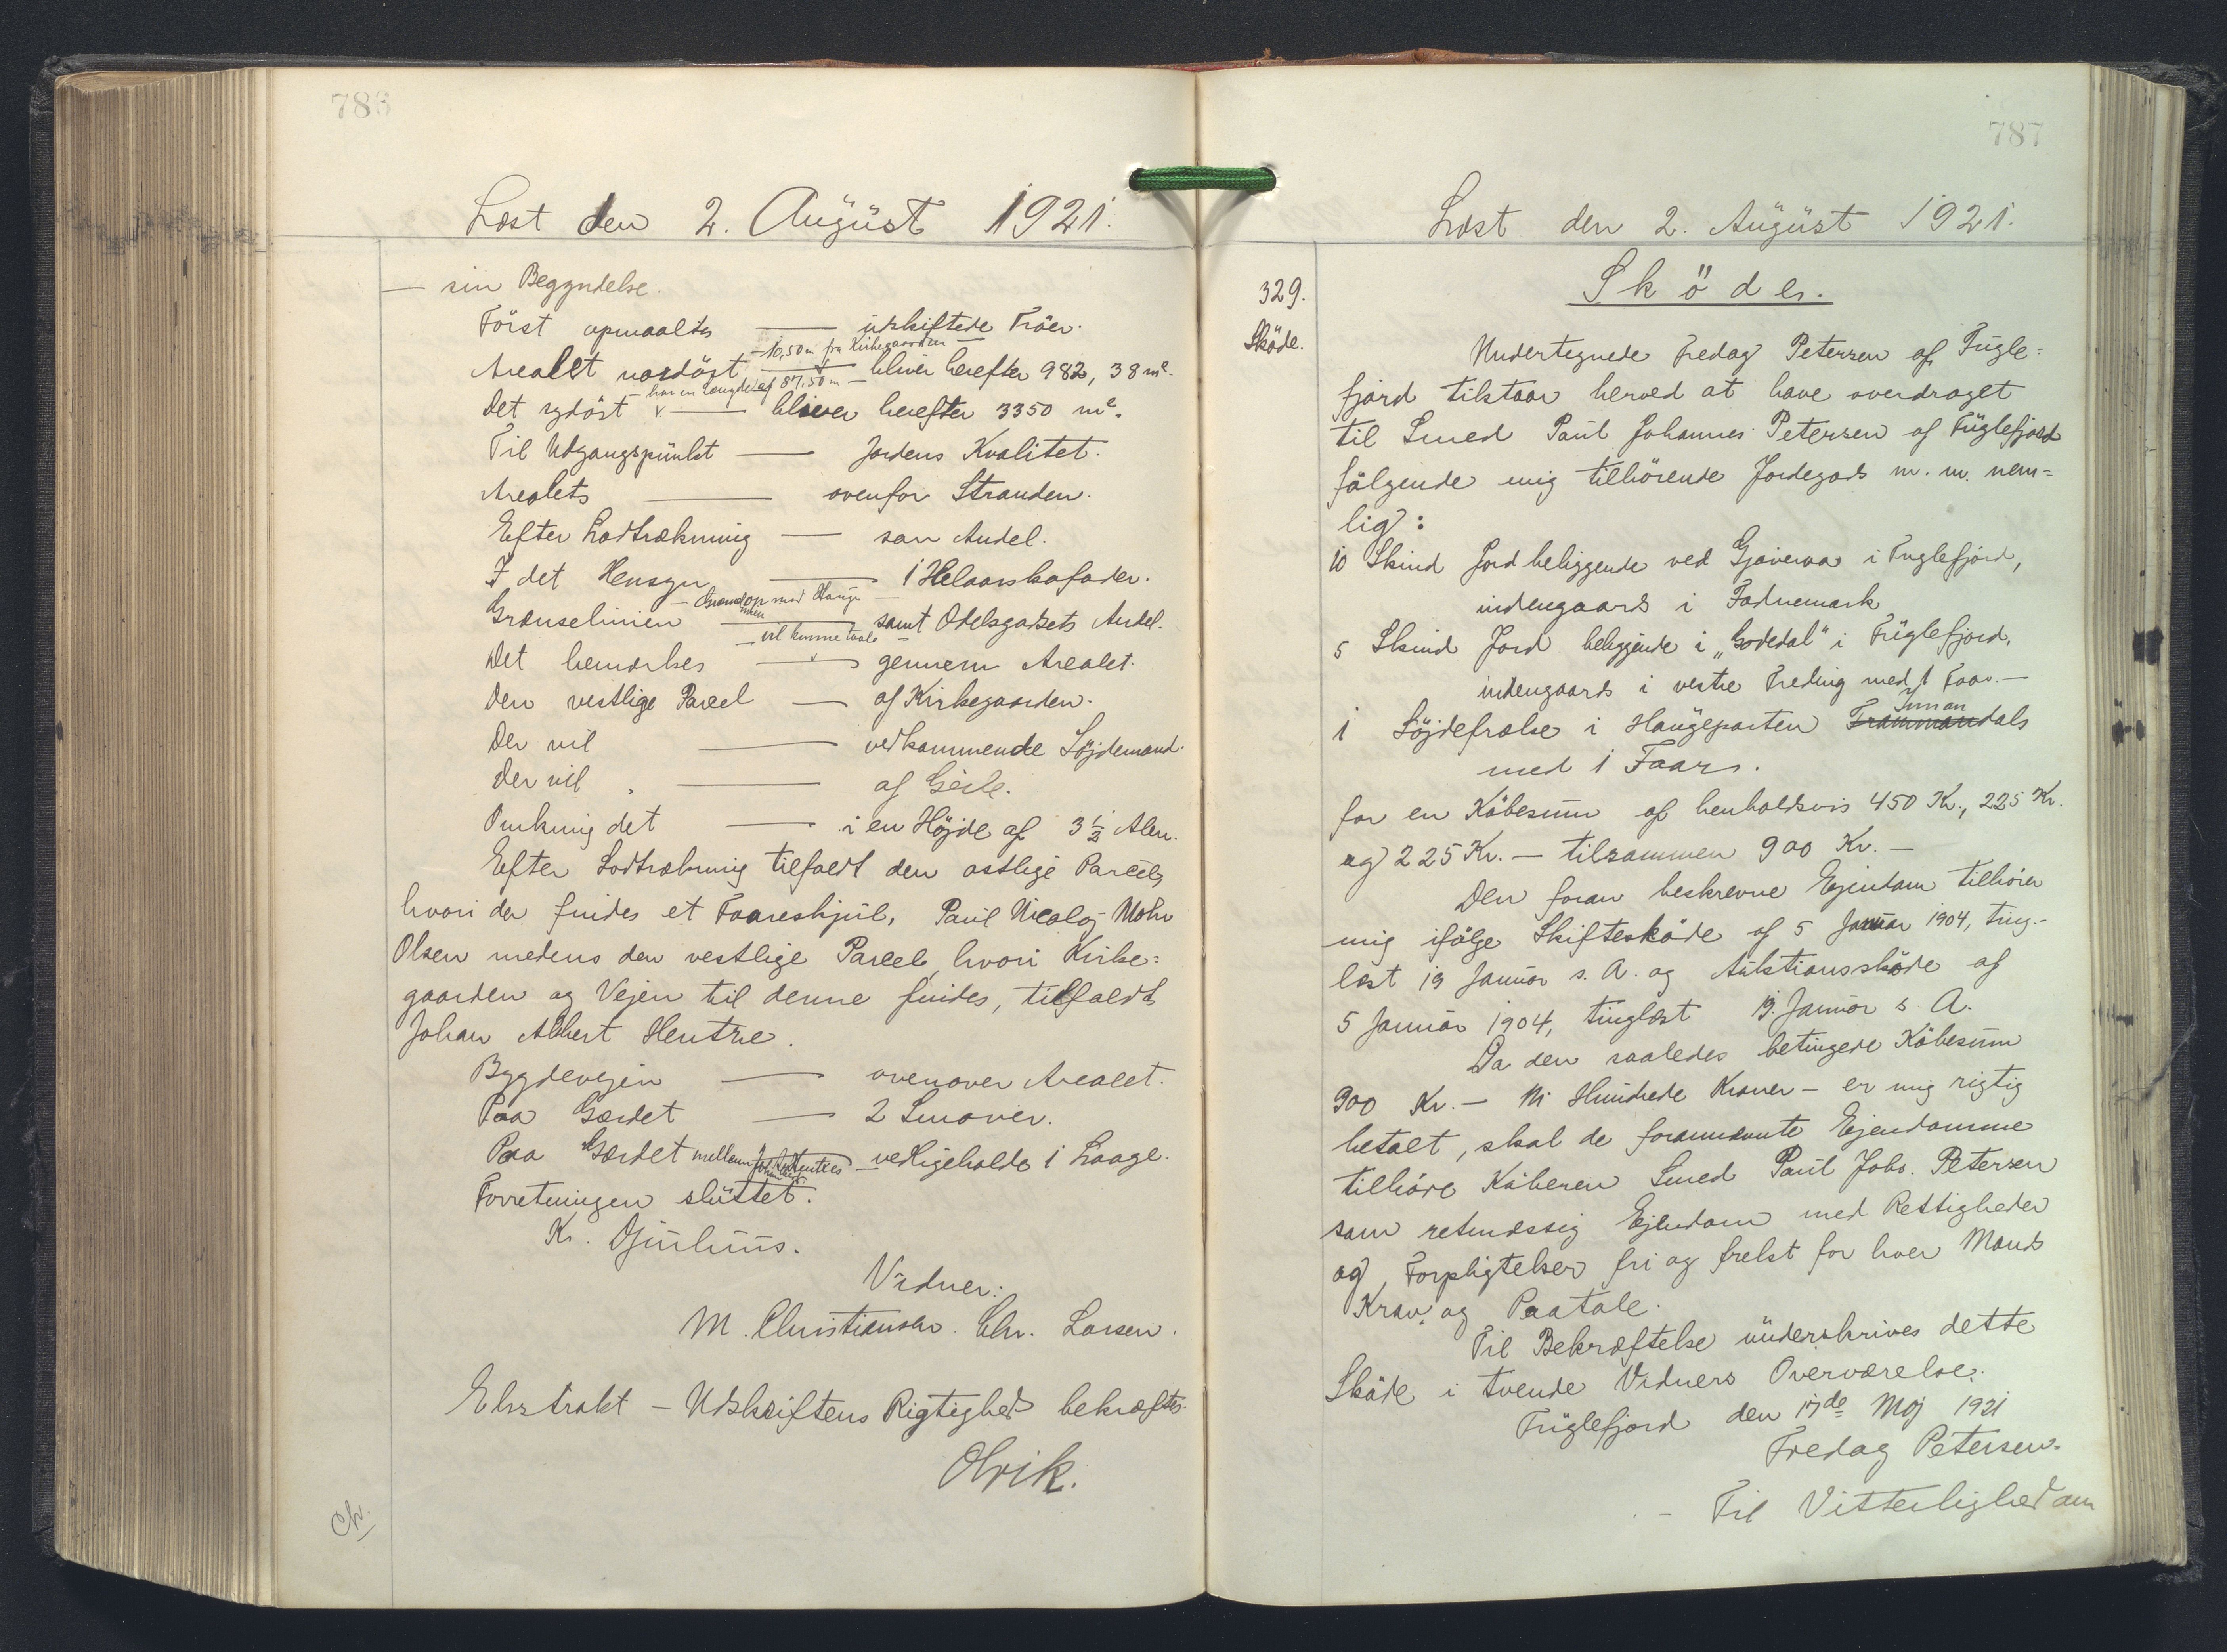 783
Læst den 2. August 1921.
— sin Begyndelse.
Först opmaaltes — udskiftede Tröer.
— 10,50 m fra Kirkegaarden —
Arealet nordöst — bliver herefter 982,38 m².
— har en Længde af 87,50 m —
Det sydöst — bliver herefter 3350 m².
Til Udgangspunkt — Jordens Kvalitet.
Arealets — ovenfor Stranden.
Efter Lodtrækning — san Andel.
I det Hensyn — 1 Helaarskofoder.
— Grænden op mod Haugen —
Grænselinien — samt Odelsgodsets Andel.
— vil kunne taale —
Det bemærkes — gennem Arealet.
Den vestlige Parcel — af Kirkegaarden.
Der vil — vedkommende Löjdemand.
Der vil — af Geile.
Omkring det — i en Höjde af 3½ Alen.
Efter Lodtrækning tilfaldt den östlige Parcel,
hvori der findes et Faareskjul, Paul Nicolaj Mohr
Olsen medens den vestlige Parcel, hvori Kirke=
gaarden og Vejen til denne findes, tilfaldt
Johan Albert Hentze.
Bygdevejen — ovenover Arealet.
Paa Gærdet — 2 Smover.
Paa Gærdet mellem — vedligeholde i Laage.
Forretningen sluttet.
Kr. Djurhuus.
Vidner:
M. Christiansen. Chr. Larsen.
Ekstrakt – Udskriftens Rigtighed bekræftes.
Olrik.
Ch.
787
Læst den 2. August 1921.
329.
Sköde.
Sköde.
Undertegnede Fredag Petersen af Fugle=
fjord tilstaar herved at have overdraget
til Smed Paul Johannes Petersen af Fuglefjord
følgende mig tilhörende Jordegods m. m. nem=
lig:
10 Skind Jord beliggende ved Gjaveraa i Fuglefjord,
indengaards i Fadnemark
5 Skind Jord beliggende i „Godedal" i Fuglefjord,
indengaards i vestre Treding med 1 Faar.—
Innan
1 Löjdefrælse i Haugeparten Trammandals
med 1 Faars.
for en Köbesum af henholdsvis 450 Kr., 225 Kr.
og 225 Kr. — tilsammen 900 Kr. —
Den foran beskrevne Ejendom tilhörer
mig ifölge Skiftesköde af 5 Januar 1904, ting-
læst 19 Januar s. A. og Auktionssköde af
5 Januar 1904, tinglæst 19. Januar s. A.
Da den saaledes betingede Köbesum
900 Kr. — Ni Hundrede Kroner – er mig rigtig
betalt, skal de forannævnte Ejendomme
tilhöre Köberen Smed Paul Johs. Petersen
som retmæssig Ejendom med Rettigheder
og Forpligtelser fri og frelst for hver Mands
Krav og Paatale.
Til Bekræftelse underskrives dette
Sköde i tvende Vidners Overværelse.
Fuglefjord den 17de Maj 1921
Fredag Petersen.
– Til Vitterlighed om